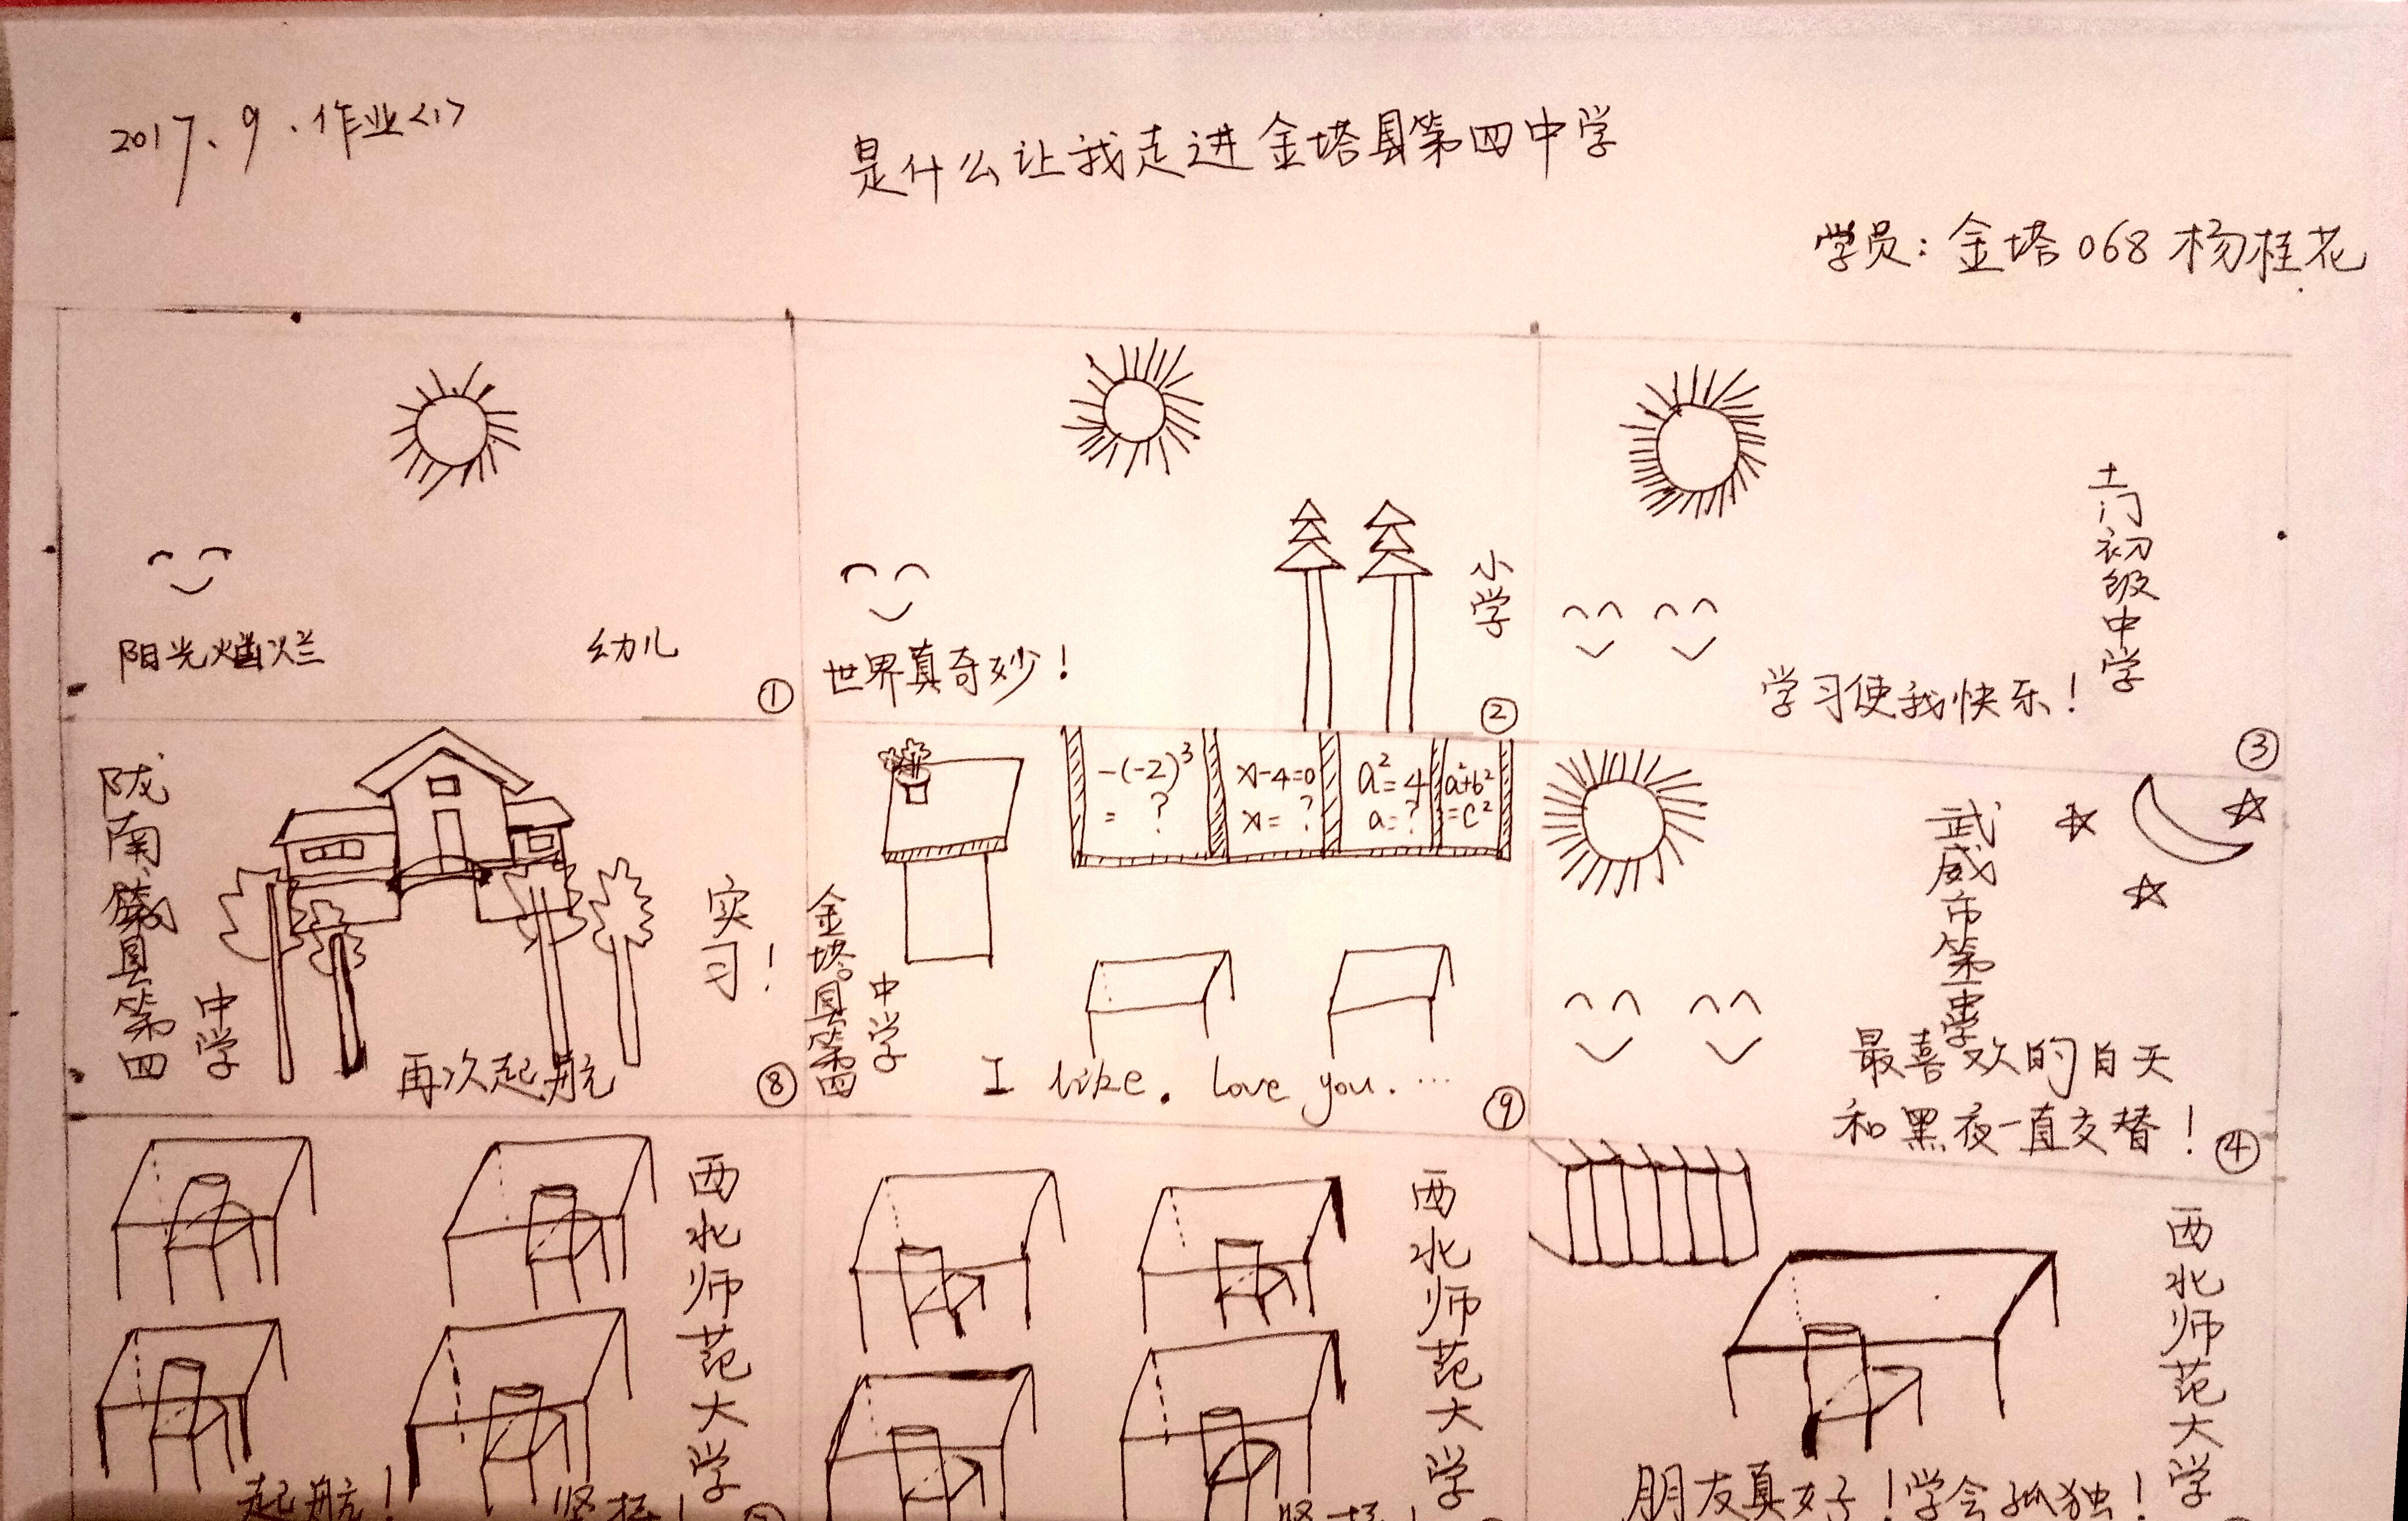 2017.9.作业<1>
是什么让我走进金塔县第四中学
学员:金塔068 杨桂花
阳光灿烂
幼儿
①
世界真奇妙!
小学
②
土门初级中学
学习使我快乐!
③
陇南
县第四
中学
实习!
再次起航
⑧
金塔县第四
中学
-(-2)³
= ?
x-4=0
x= ?
a²=4
a=?
a²+b²
=c²
I like. love you. ...
⑨
武威市第
最喜欢的白天
和黑夜一直交替!
④
西北师范大学
起航!
坚持!
西北师范大学
坚持!
西北师范大学
朋友真好!学会孤独!